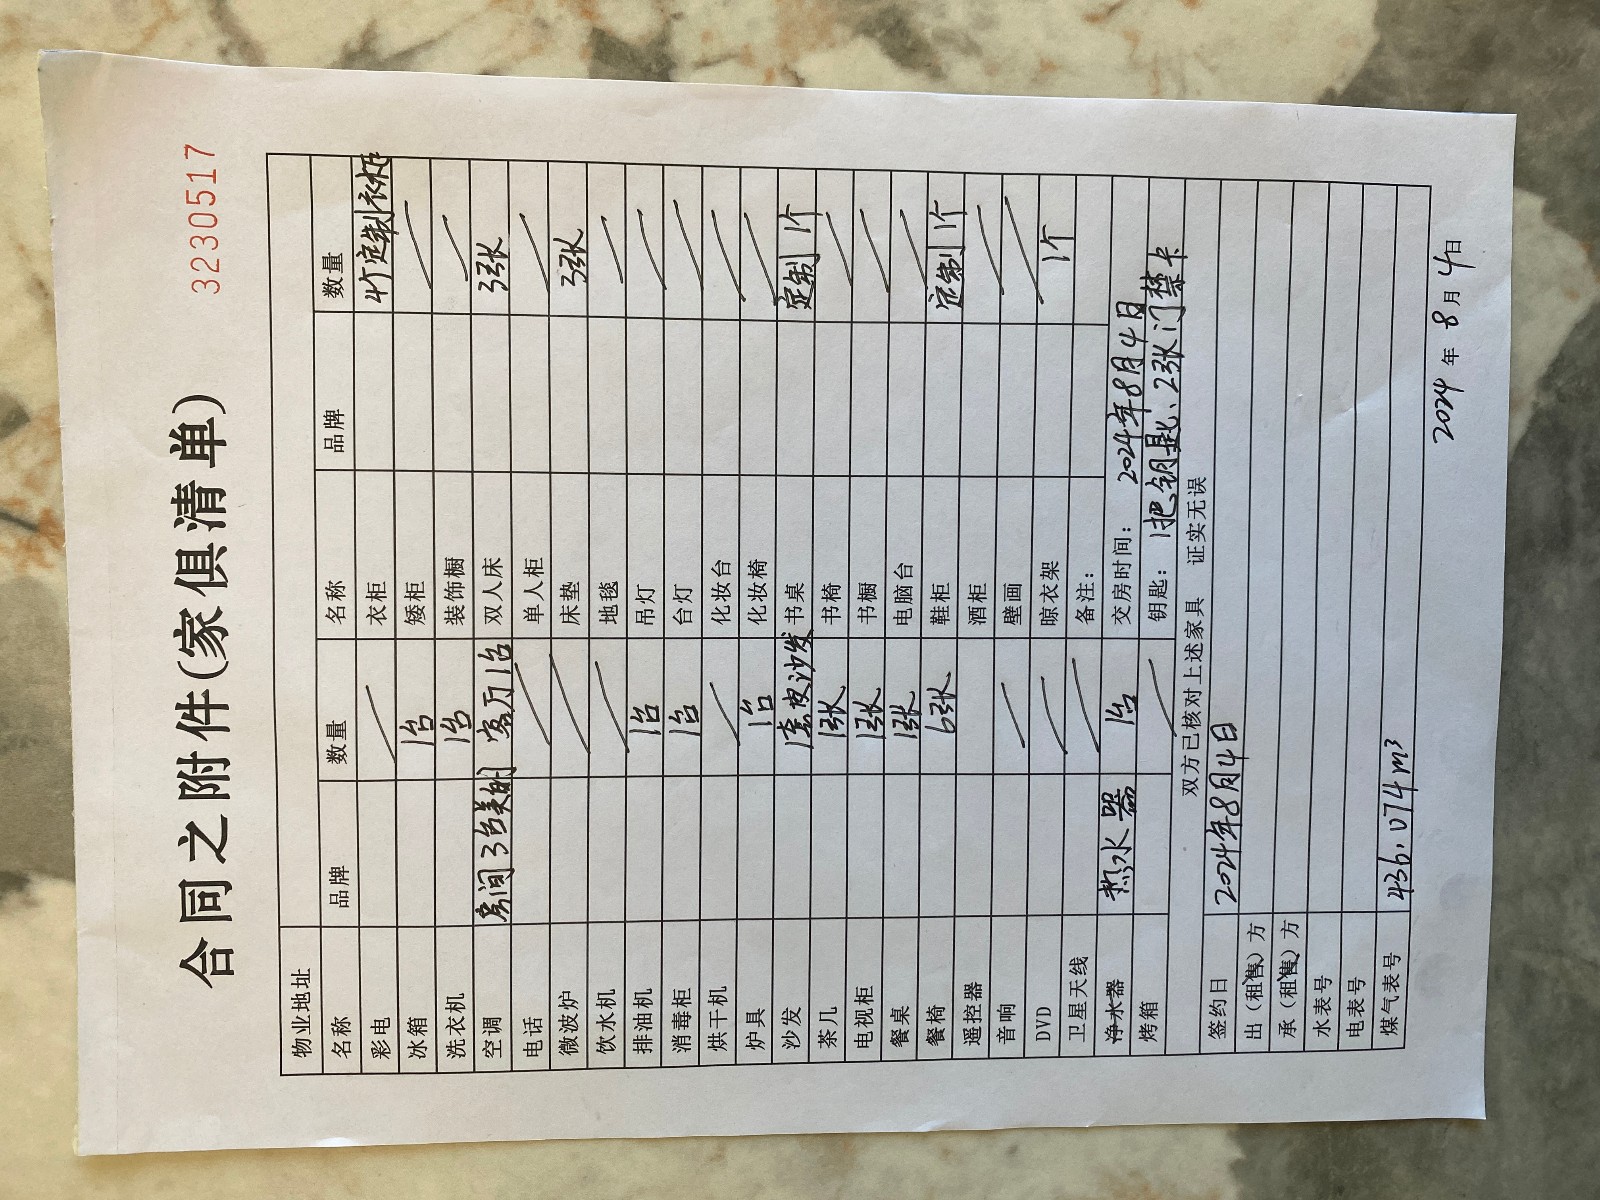 3230517
合同之附件(家俱清单)
物业地址
名称 品牌 数量 名称 品牌 数量
彩电 衣柜 4个定制衣柜
冰箱 1台 矮柜
洗衣机 1台 装饰橱
空调 房间3台美的 客厅1台 双人床 3张
电话 单人柜
微波炉 床垫 3张
饮水机 地毯
排油机 1台 吊灯
消毒柜 1台 台灯
烘干机 化妆台
炉具 1台 化妆椅
沙发 1套皮沙发 书桌 定制1个
茶几 1张 书椅
电视柜 1张 书橱
餐桌 1张 电脑台
餐椅 6张 鞋柜 定制1个
遥控器 酒柜
音响 壁画
DVD 晾衣架 1个
卫星天线 备注:
净水器 热水器 1台 交房时间: 2024年8月4日
烤箱 钥匙: 1把钥匙、23张门禁卡
双方已核对上述家具 证实无误
签约日 2024年8月4日
出(租售)方
承(租售)方
水表号
电表号
煤气表号 436.074m³
2024年8月4日